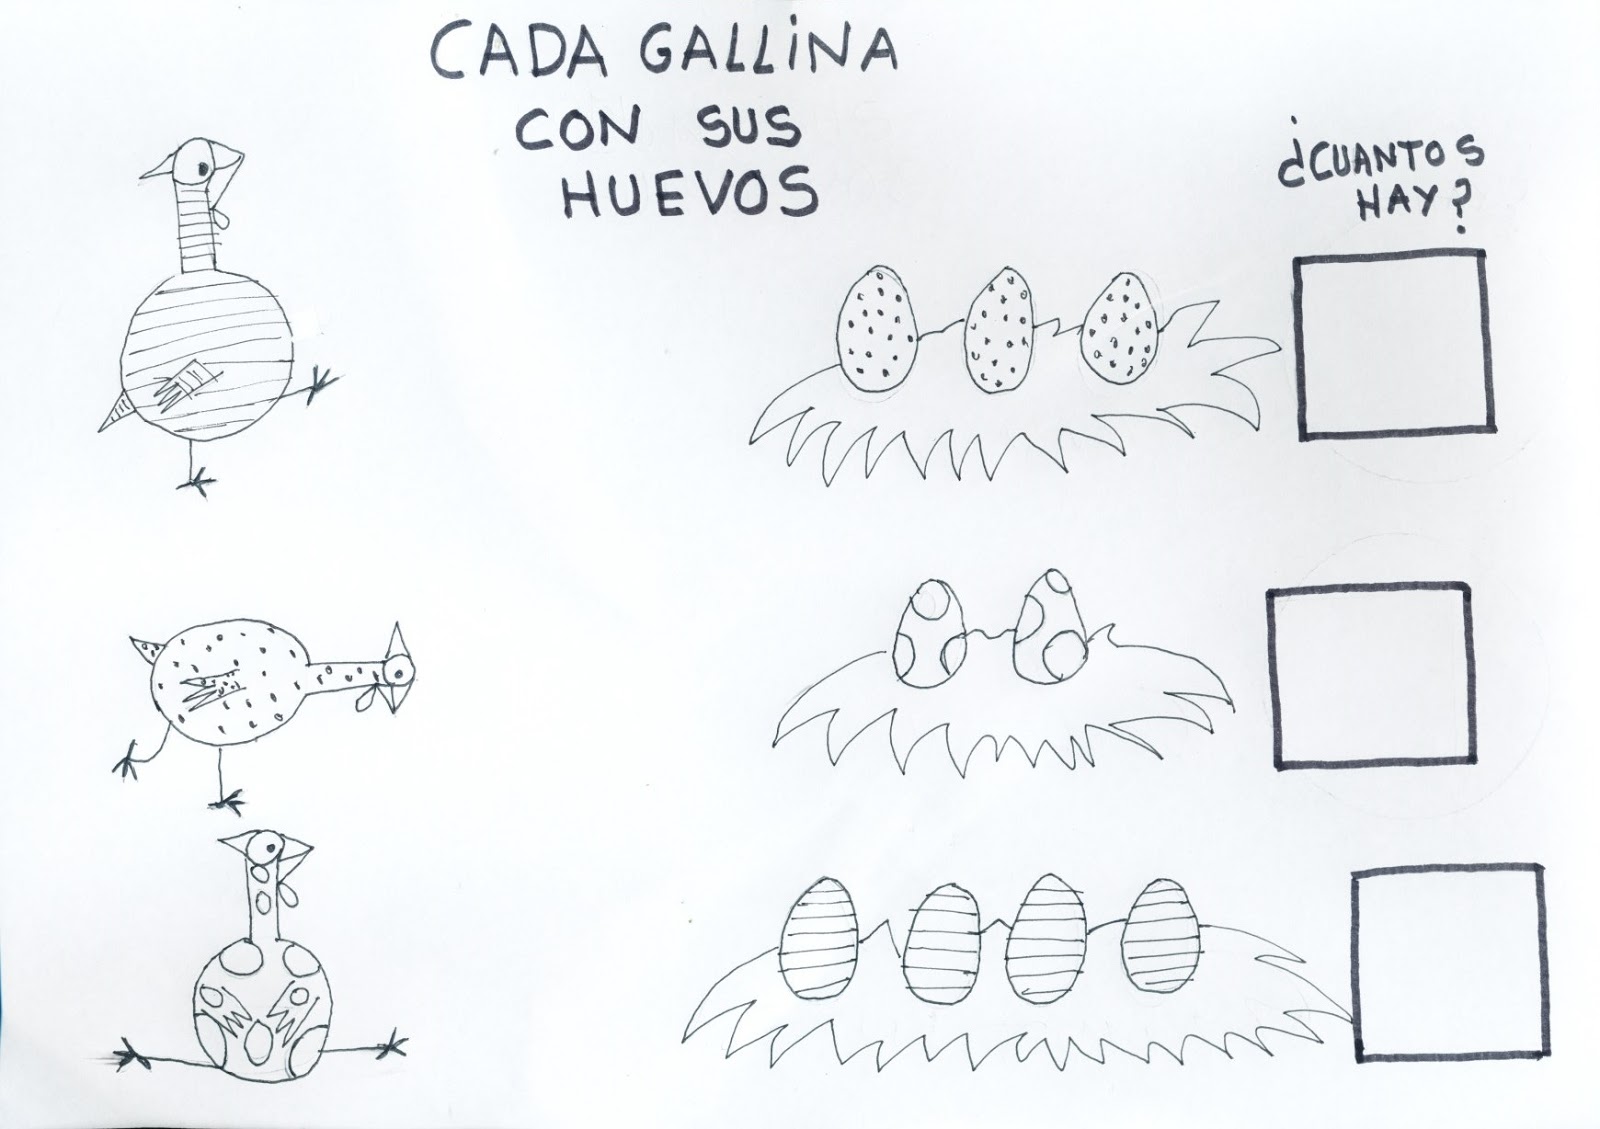 CADA GALLINA
CON SUS
HUEVOS
¿CUANTOS
HAY?